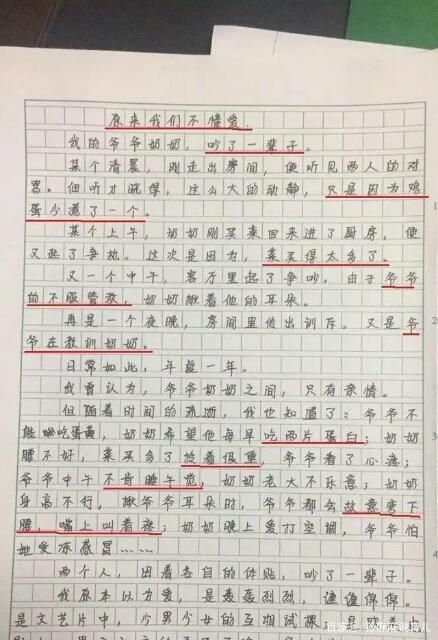 原来我们不懂爱
我的爷爷奶奶，吵了一辈子。
某个清晨，刚走出房间，便听见两人的对
骂。细听才晓得，这么大的动静，只是因为鸡
蛋少煮了一个。
某个上午，奶奶刚买菜回来进了厨房，便
又起了争执。这次是因为，菜买得太多了。
又一个中午，客厅里起了争吵。由于爷爷
的不服管教，奶奶揪着他的耳朵。
再是一个夜晚，房间里传出训斥。又是爷
爷在教训奶奶。
日常如此，年复一年。
我曾认为，爷爷奶奶之间，只有亲情。
但随着时间的流逝，我也知道了：爷爷不
能吃蛋黄，奶奶希望他每早吃两片蛋白；奶奶
腰不好，菜买多了拎着很重，爷爷看了心疼；
爷爷中午不肯睡午觉，奶奶老大不乐意；奶奶
身高不行，揪爷爷耳朵时，爷爷都会故意弯下
腰，嘴上叫着疼；奶奶晚上爱打空调，爷爷怕
她受冻感冒……
两个人，因着各自的体贴，吵了一辈子。
我原本以为爱，是轰轰烈烈，缠缠绵绵。
是文艺片中，少男少女的相互试探，是欧美上